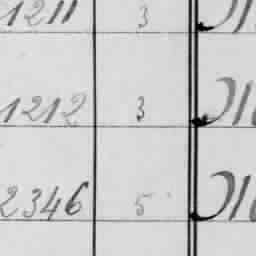 1211 3
1212 3
2346 5